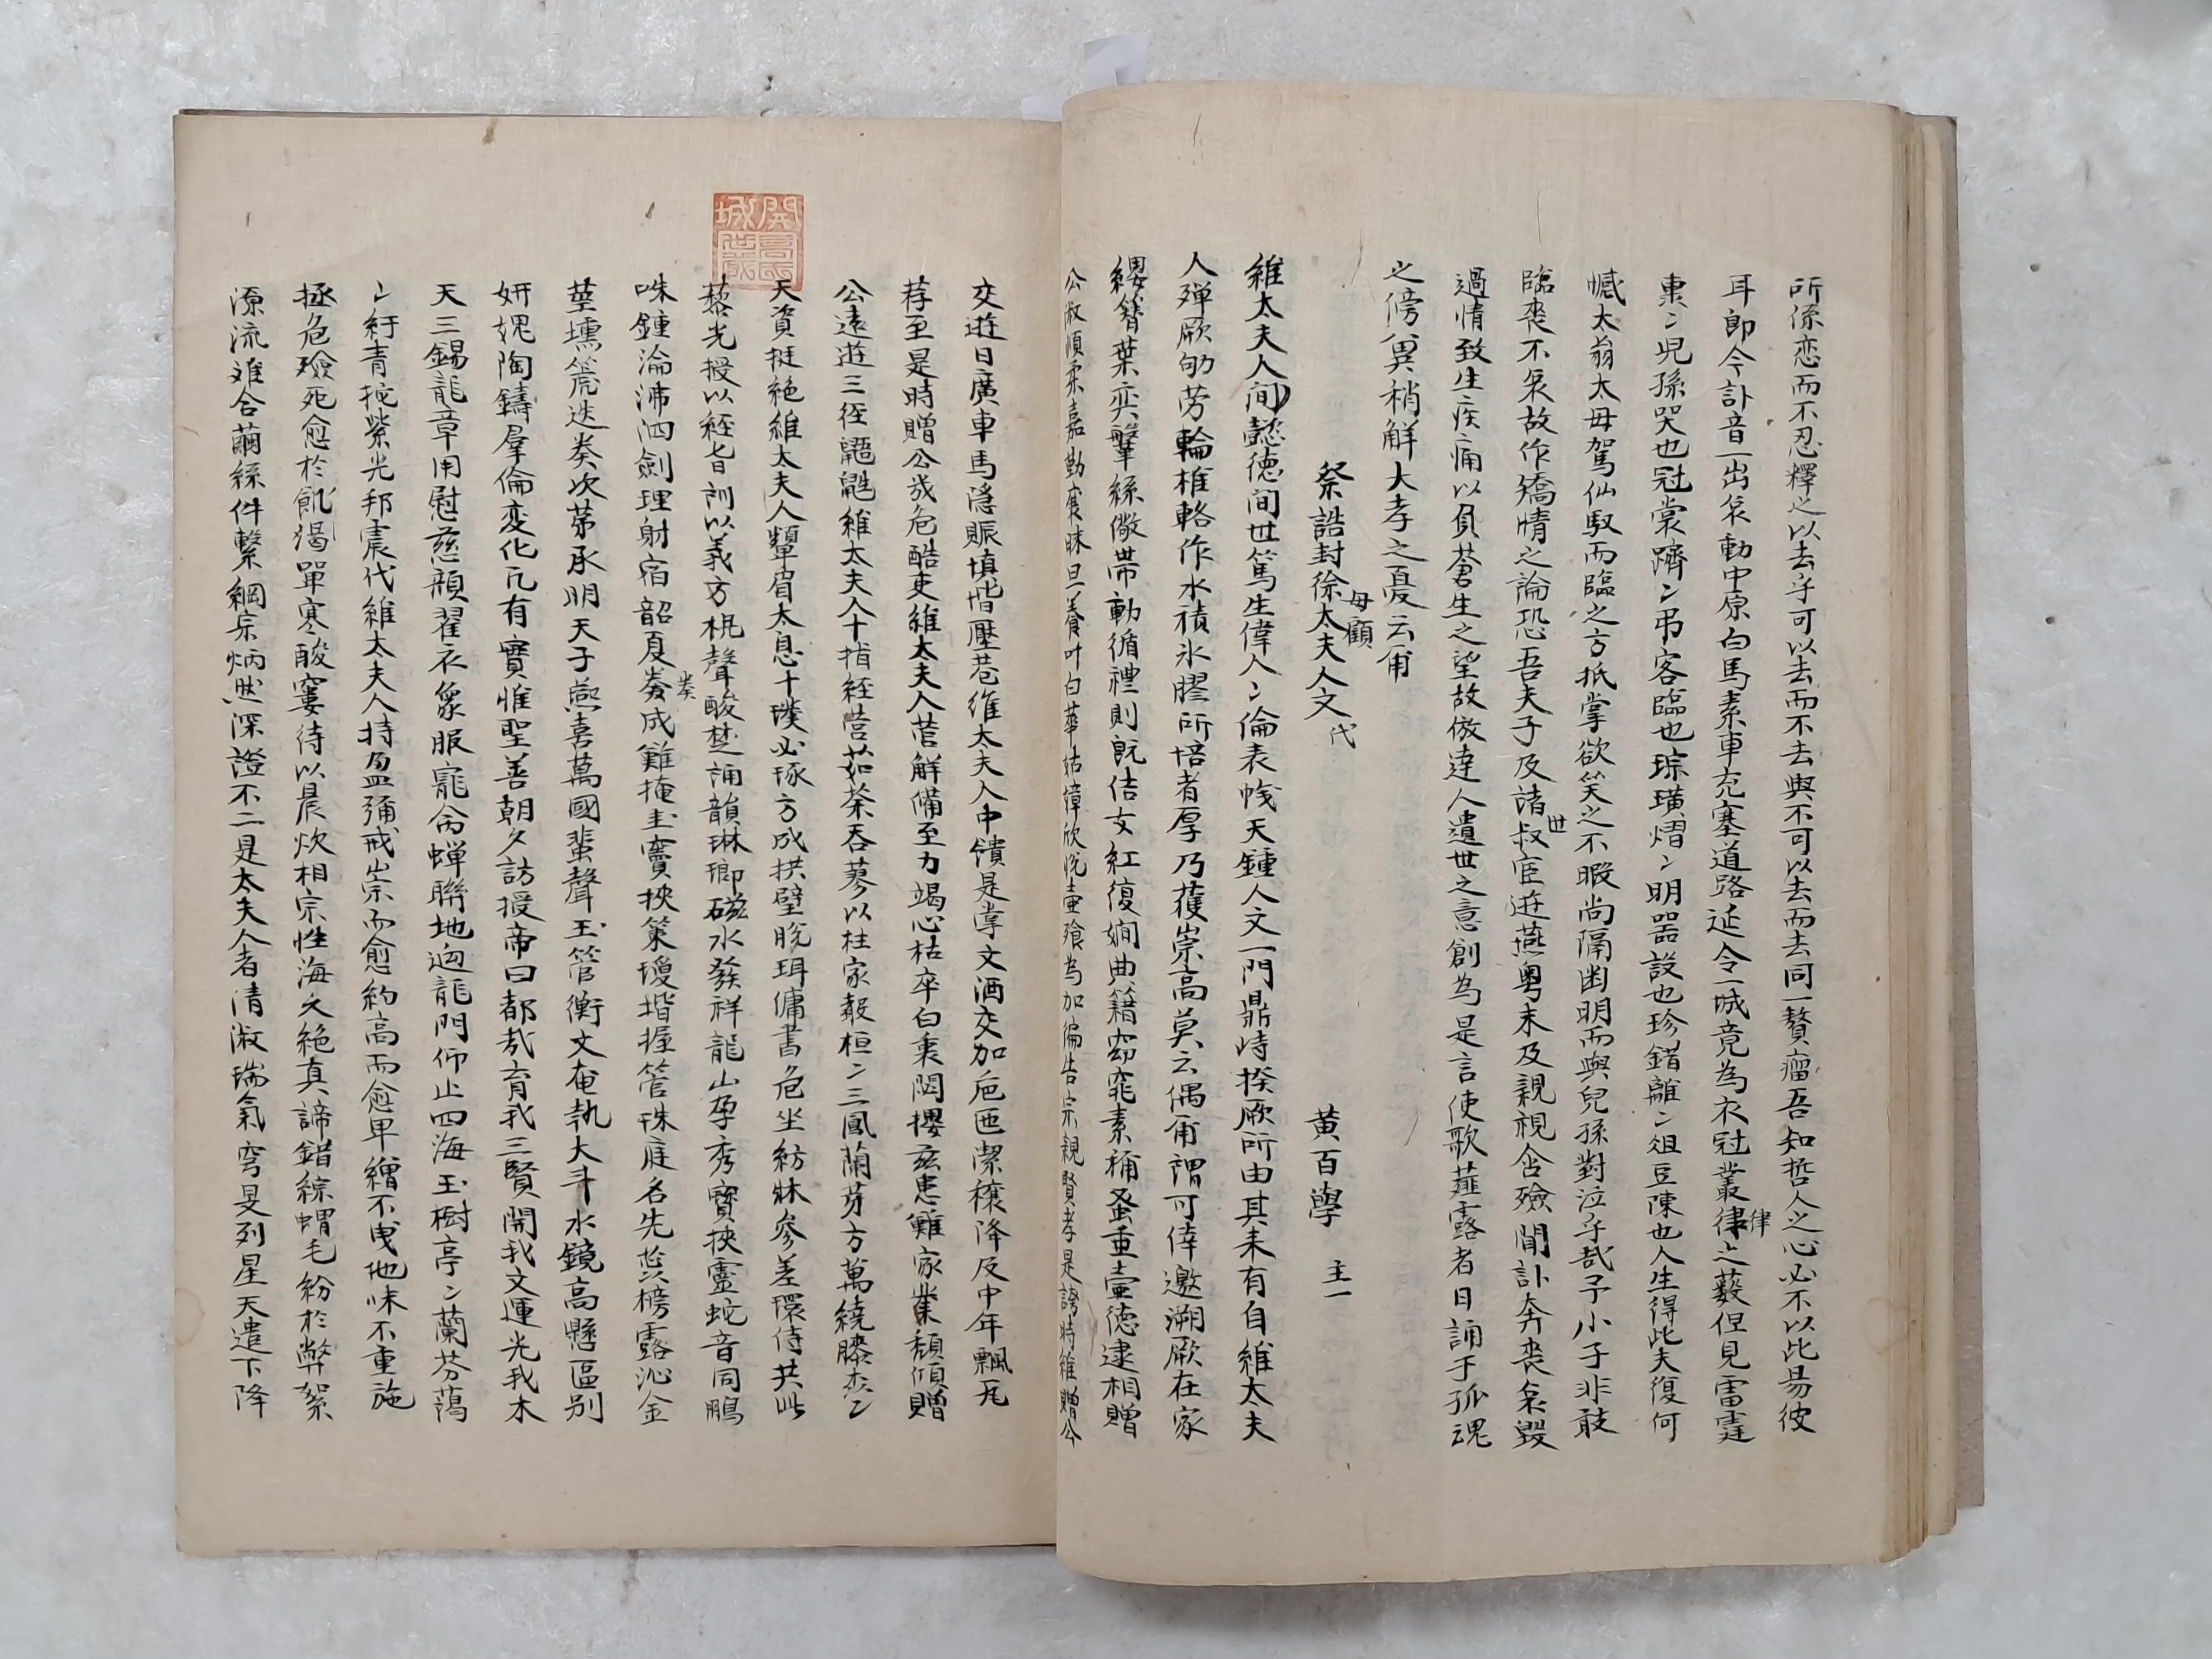 所係恋而不忍釋之以去乎可以去而不去與不可以去而去同一贅瘤吾知哲人之心必不以此易彼
耳即今訃音一出哀動中原白馬素車充塞道路延令一城竟為衣冠叢律之藪但見雷霆
律
東〻児孫哭也冠裳躋〻弔客臨也琮璜熠〻明器設也珍錯離〻俎豆陳也人生得此夫復何
憾太翁太母駕仙馭而臨之方抵掌欲笑之不暇尚隔幽明而與兒孫對泣乎哉予小子非敢
臨喪不哀故作矯情之論恐吾夫子及諸叔宦遊燕粵未及親視含殮聞訃奔喪哀毀
世
過情致生疾痛以負蒼生之望故倣達人遺世之意創為是言使歌薤露者日誦于孤魂
之傍冀稍解大孝之憂云爾
祭誥封徐太夫人文 代 黃百學 主一
母顧
維太夫人間懿德間世篤生偉人〻倫表幟天鍾人文一門鼎峙揆厥所由其来有自維太夫
人殫厥劬劳輪椎輅作水積氷膠所培者厚乃獲崇高莫云偶甭謂可倖邀溯厥在家
纓簪葉奕鞶絲儆帶動循禮則既佶女紅復嫻典籍窈窕素稱蚤重壼德逮相贈
公淑順柔嘉勤襄昧旦養叶白華姑嫜欣悅壼飱為加徧告宗親賢孝是誇時維贈公
交遊日廣車馬隱賑填堦壓巷維太夫人中饋是掌文酒交加卮匜潔穣降及中年飄瓦
荐至是時贈公戎危酷吏維太夫人营解備至力竭心枯卒白衷悶攖兹患難家業頹傾贈
公遠遊三徑鼯鼪維太夫人十指經营茹荼呑蓼以柱家毅桓〻三鳳蘭芽方萬繞膝杰〻
天資挺絶維太夫人顰眉太息十璞必琢方成拱璧脫珥傭書危坐紡牀參差環侍共此
藜光授以經旨訓以義方棍聲酸楚誦韻琳瑯磁水發祥龍山孕秀寶挾靈蛇音同鵬
咮鍾淪沸泗劍理射宿韶夏奏成難掩圭竇挾策瓊堦握管珠庭名先蕊榜露沁金
奏
莖壎箎迭奏次苐承明天子燕喜萬國蜚聲玉管衡文奄執大斗水鏡高懸區别
妍媸陶鑄羣倫変化凢有實惟聖善朝夕訪授帝曰都哉育我三賢開我文運光我木
天三錫龍章用慰慈顏翟衣象服寵侖蟬聯地迥龍門仰止四海玉樹亭〻蘭芬藹
〻紆青拕紫光邦震代維太夫人持盈彌戒崇而愈約高而愈卑繒不曳地味不重施
拯危殮死愈於飢渴單寒酸窶待以晨炊相宗性海夊絶真諦錯綜蝟毛紛於弊絮
源流难合繭絲件繫綱宗炳然深證不二是太夫人者清淑瑞氣穹旻列星天遣下降
開
城